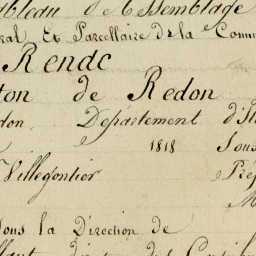 bleau d'Assemblage
ral, Et Parcellaire de la Comm
Rende
ton de Redon
don Département d'Il
1818 Sous
Villegontier Préf
M
Sous la Direction de